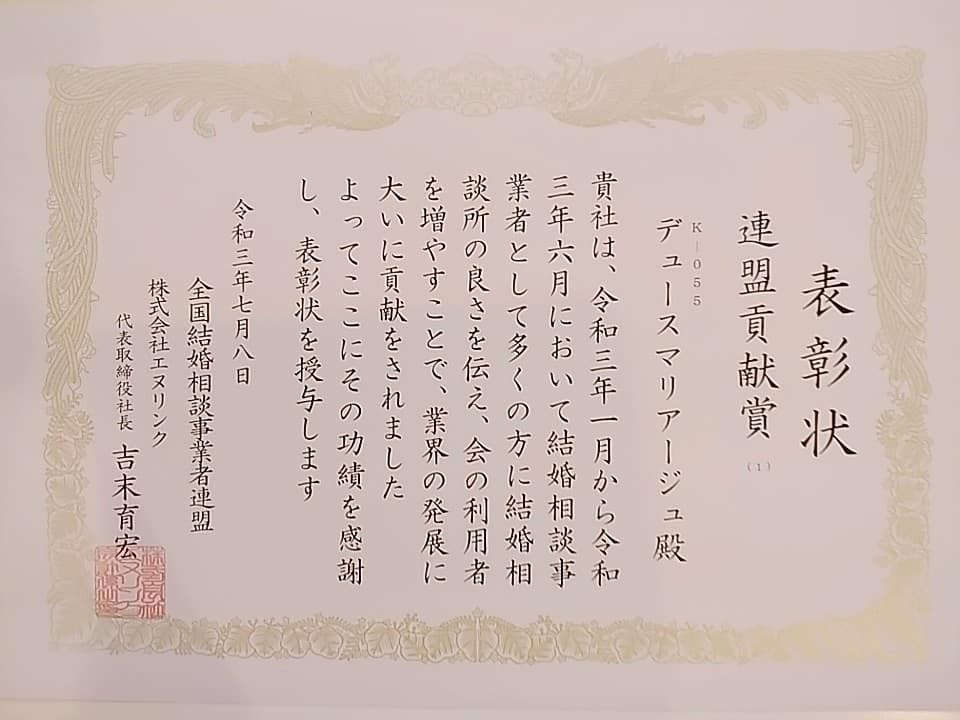 表彰状
連盟貢献賞
(1)
K-055
デュースマリアージュ殿
貴社は、令和三年一月から令和
三年六月において結婚相談事
業者として多くの方に結婚相
談所の良さを伝え、会の利用者
を増やすことで、業界の発展に
大いに貢献をされました
よってここにその功績を感謝
し、表彰状を授与します
令和三年七月八日
全国結婚相談事業者連盟
株式会社エヌリンク
代表取締役社長 吉末育宏